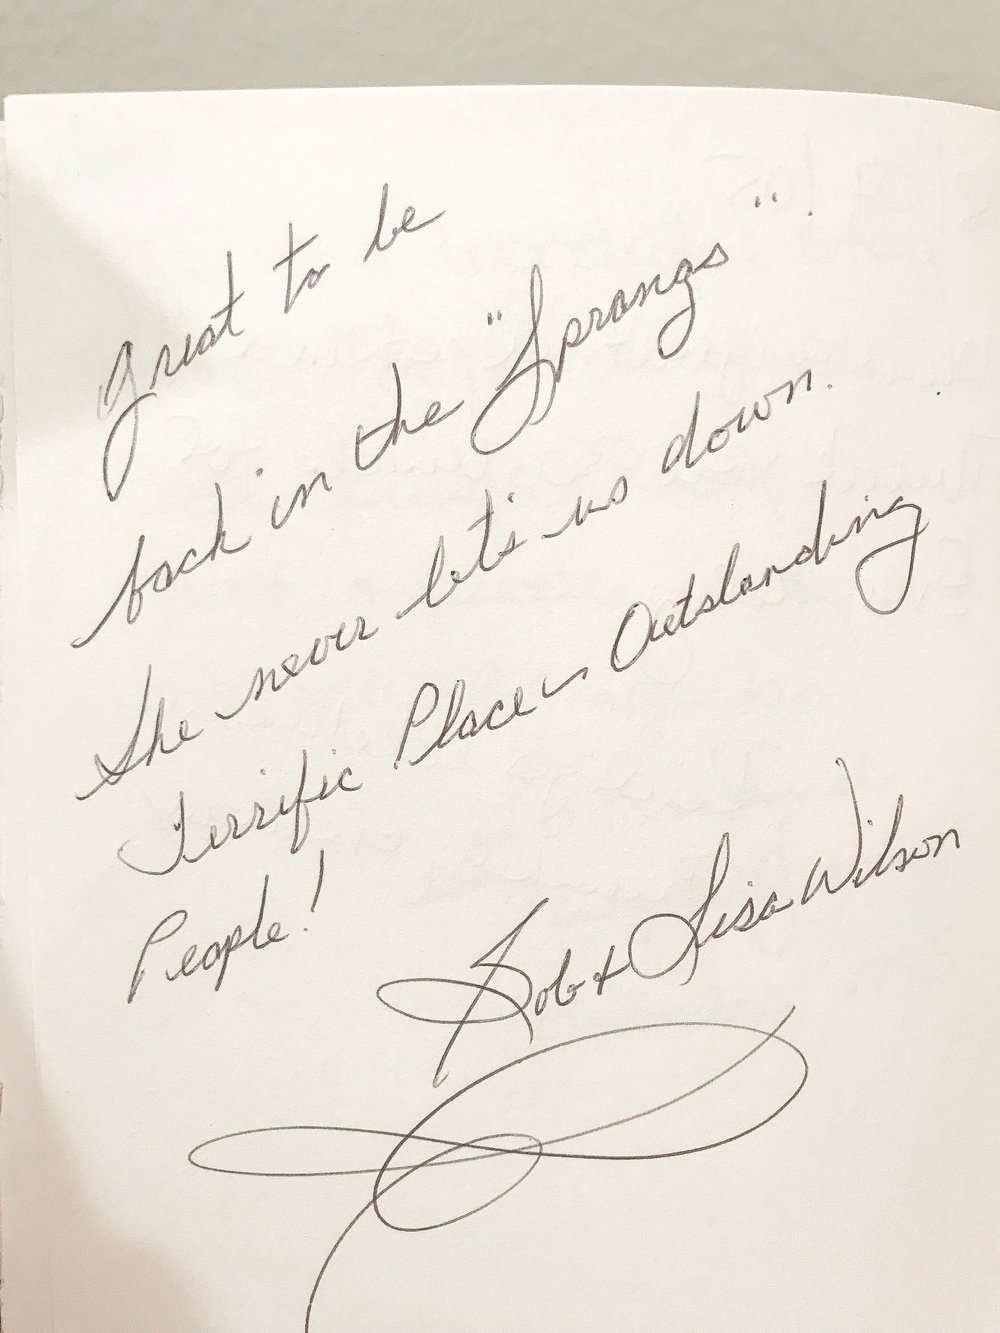 Great to be
back in the "Sprangs".
She never let's us down.
Terrific Place ~ Outstanding
People!
Rob & Lisa Wilson